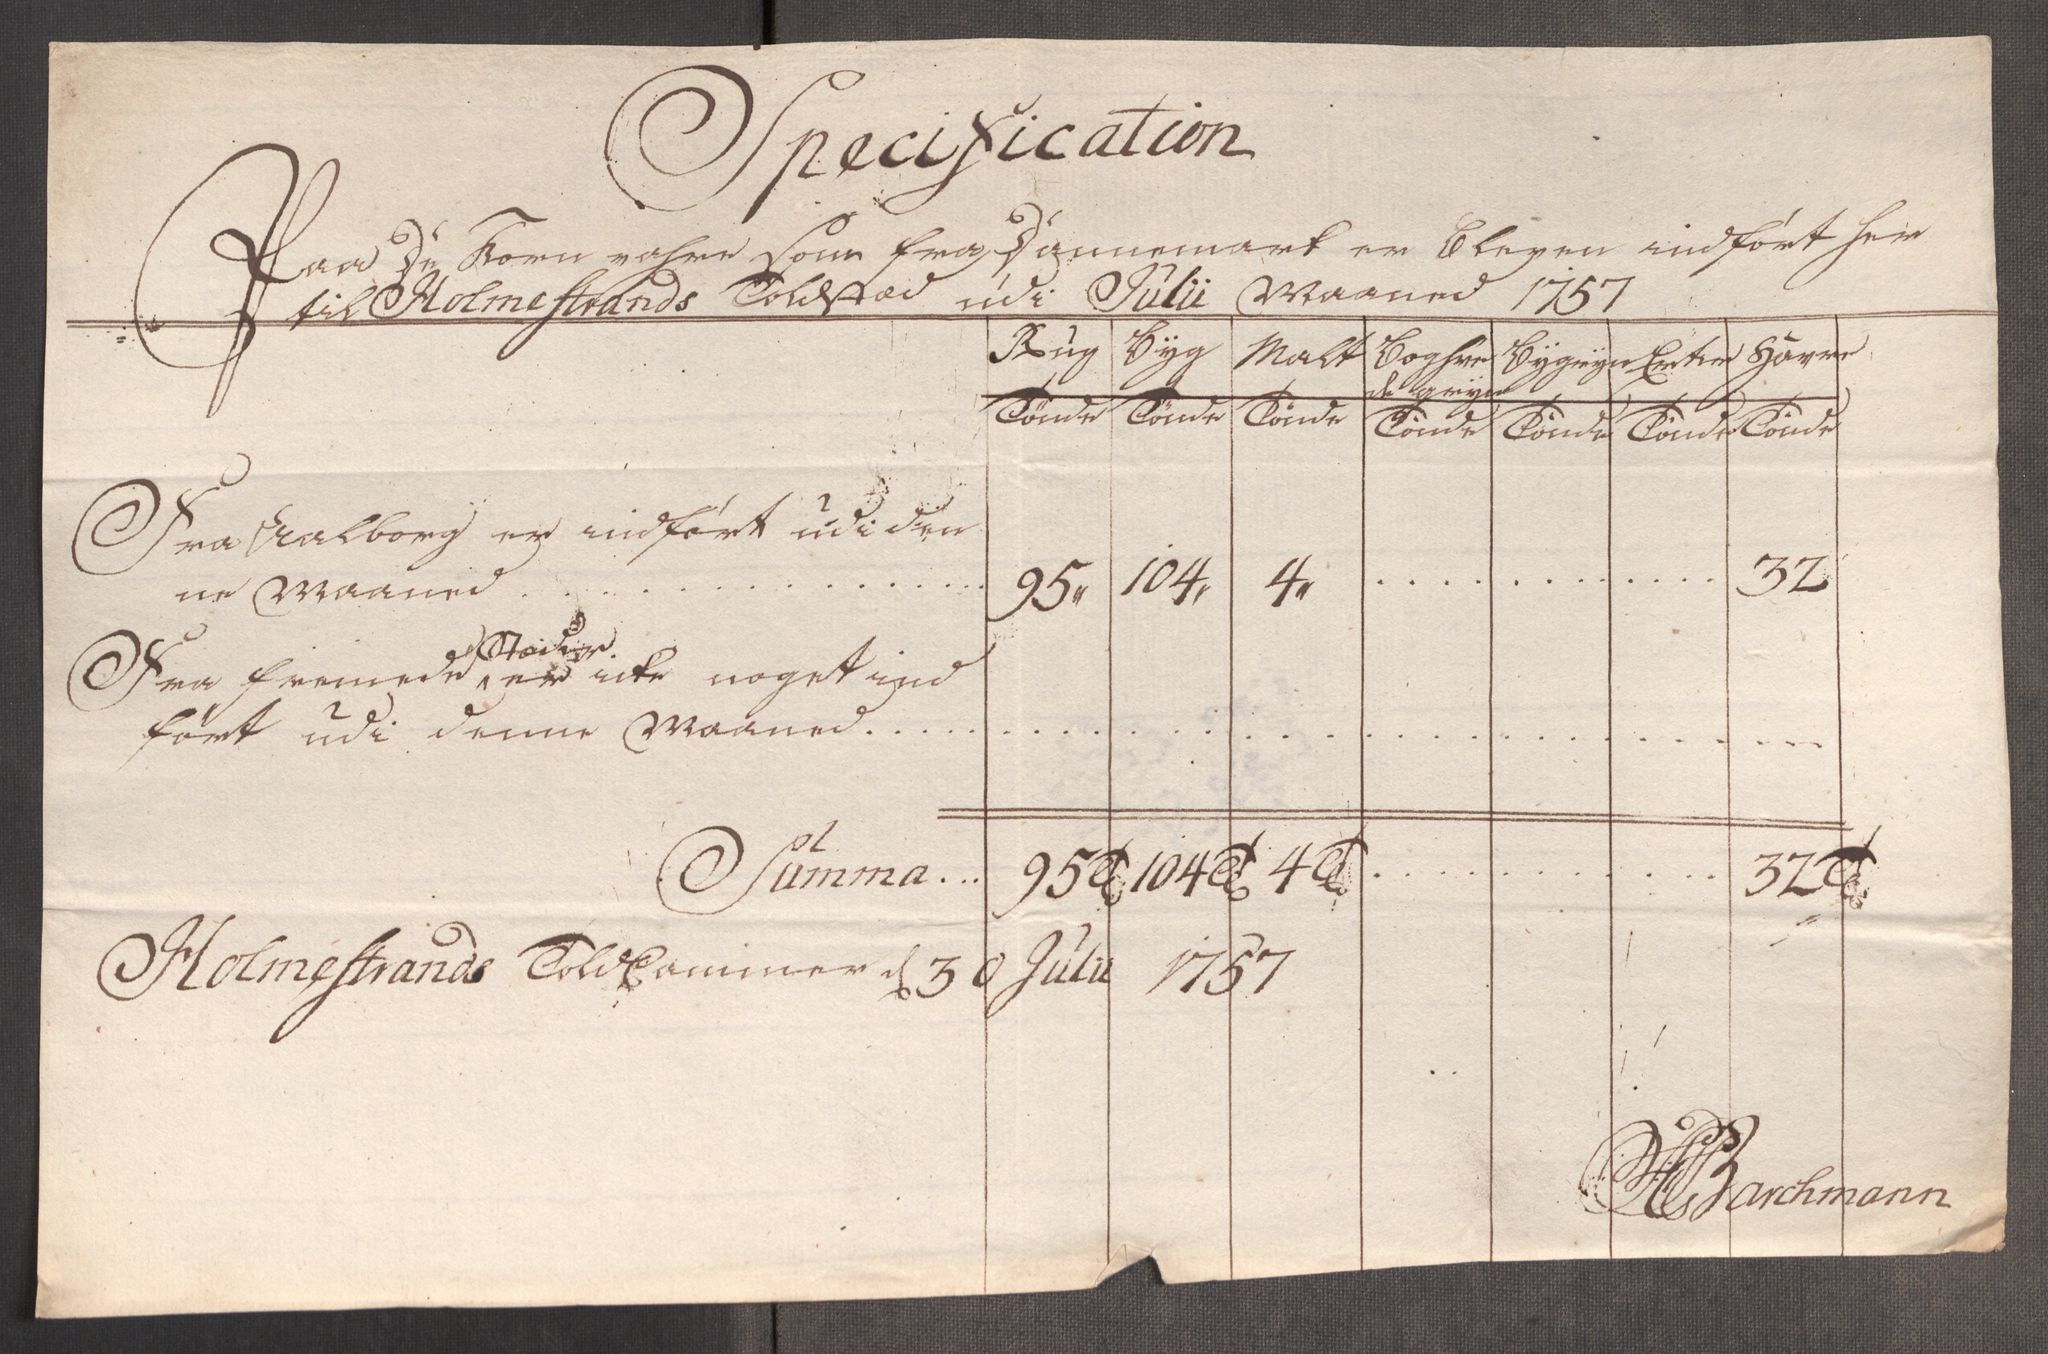 Specification
Paa De Korn vahre som fra Dannemark er bleven indført her
til Holmestrands Toldstæd udi Julii Maaned 1757
Rug Byg Malt Boghve Bygryn Erter Havre
de gryn
Tønde Tønde Tønde Tønde Tønde Tønde Tønde
Fra Aalborg er indført udi den
ne Maaned . . . . . . . . . . 95,, 104,, 4,, . . . . . . . . . . 32
Stæder
Fra fremede er icke noget ind
ført udi denne Maaned . . . . . . . . . .
Summa... 95 T 104 T 4 T . . . . . . . . . . 32 T
Holmestrands Told Cammer d 30 Julii 1757
Barchmann